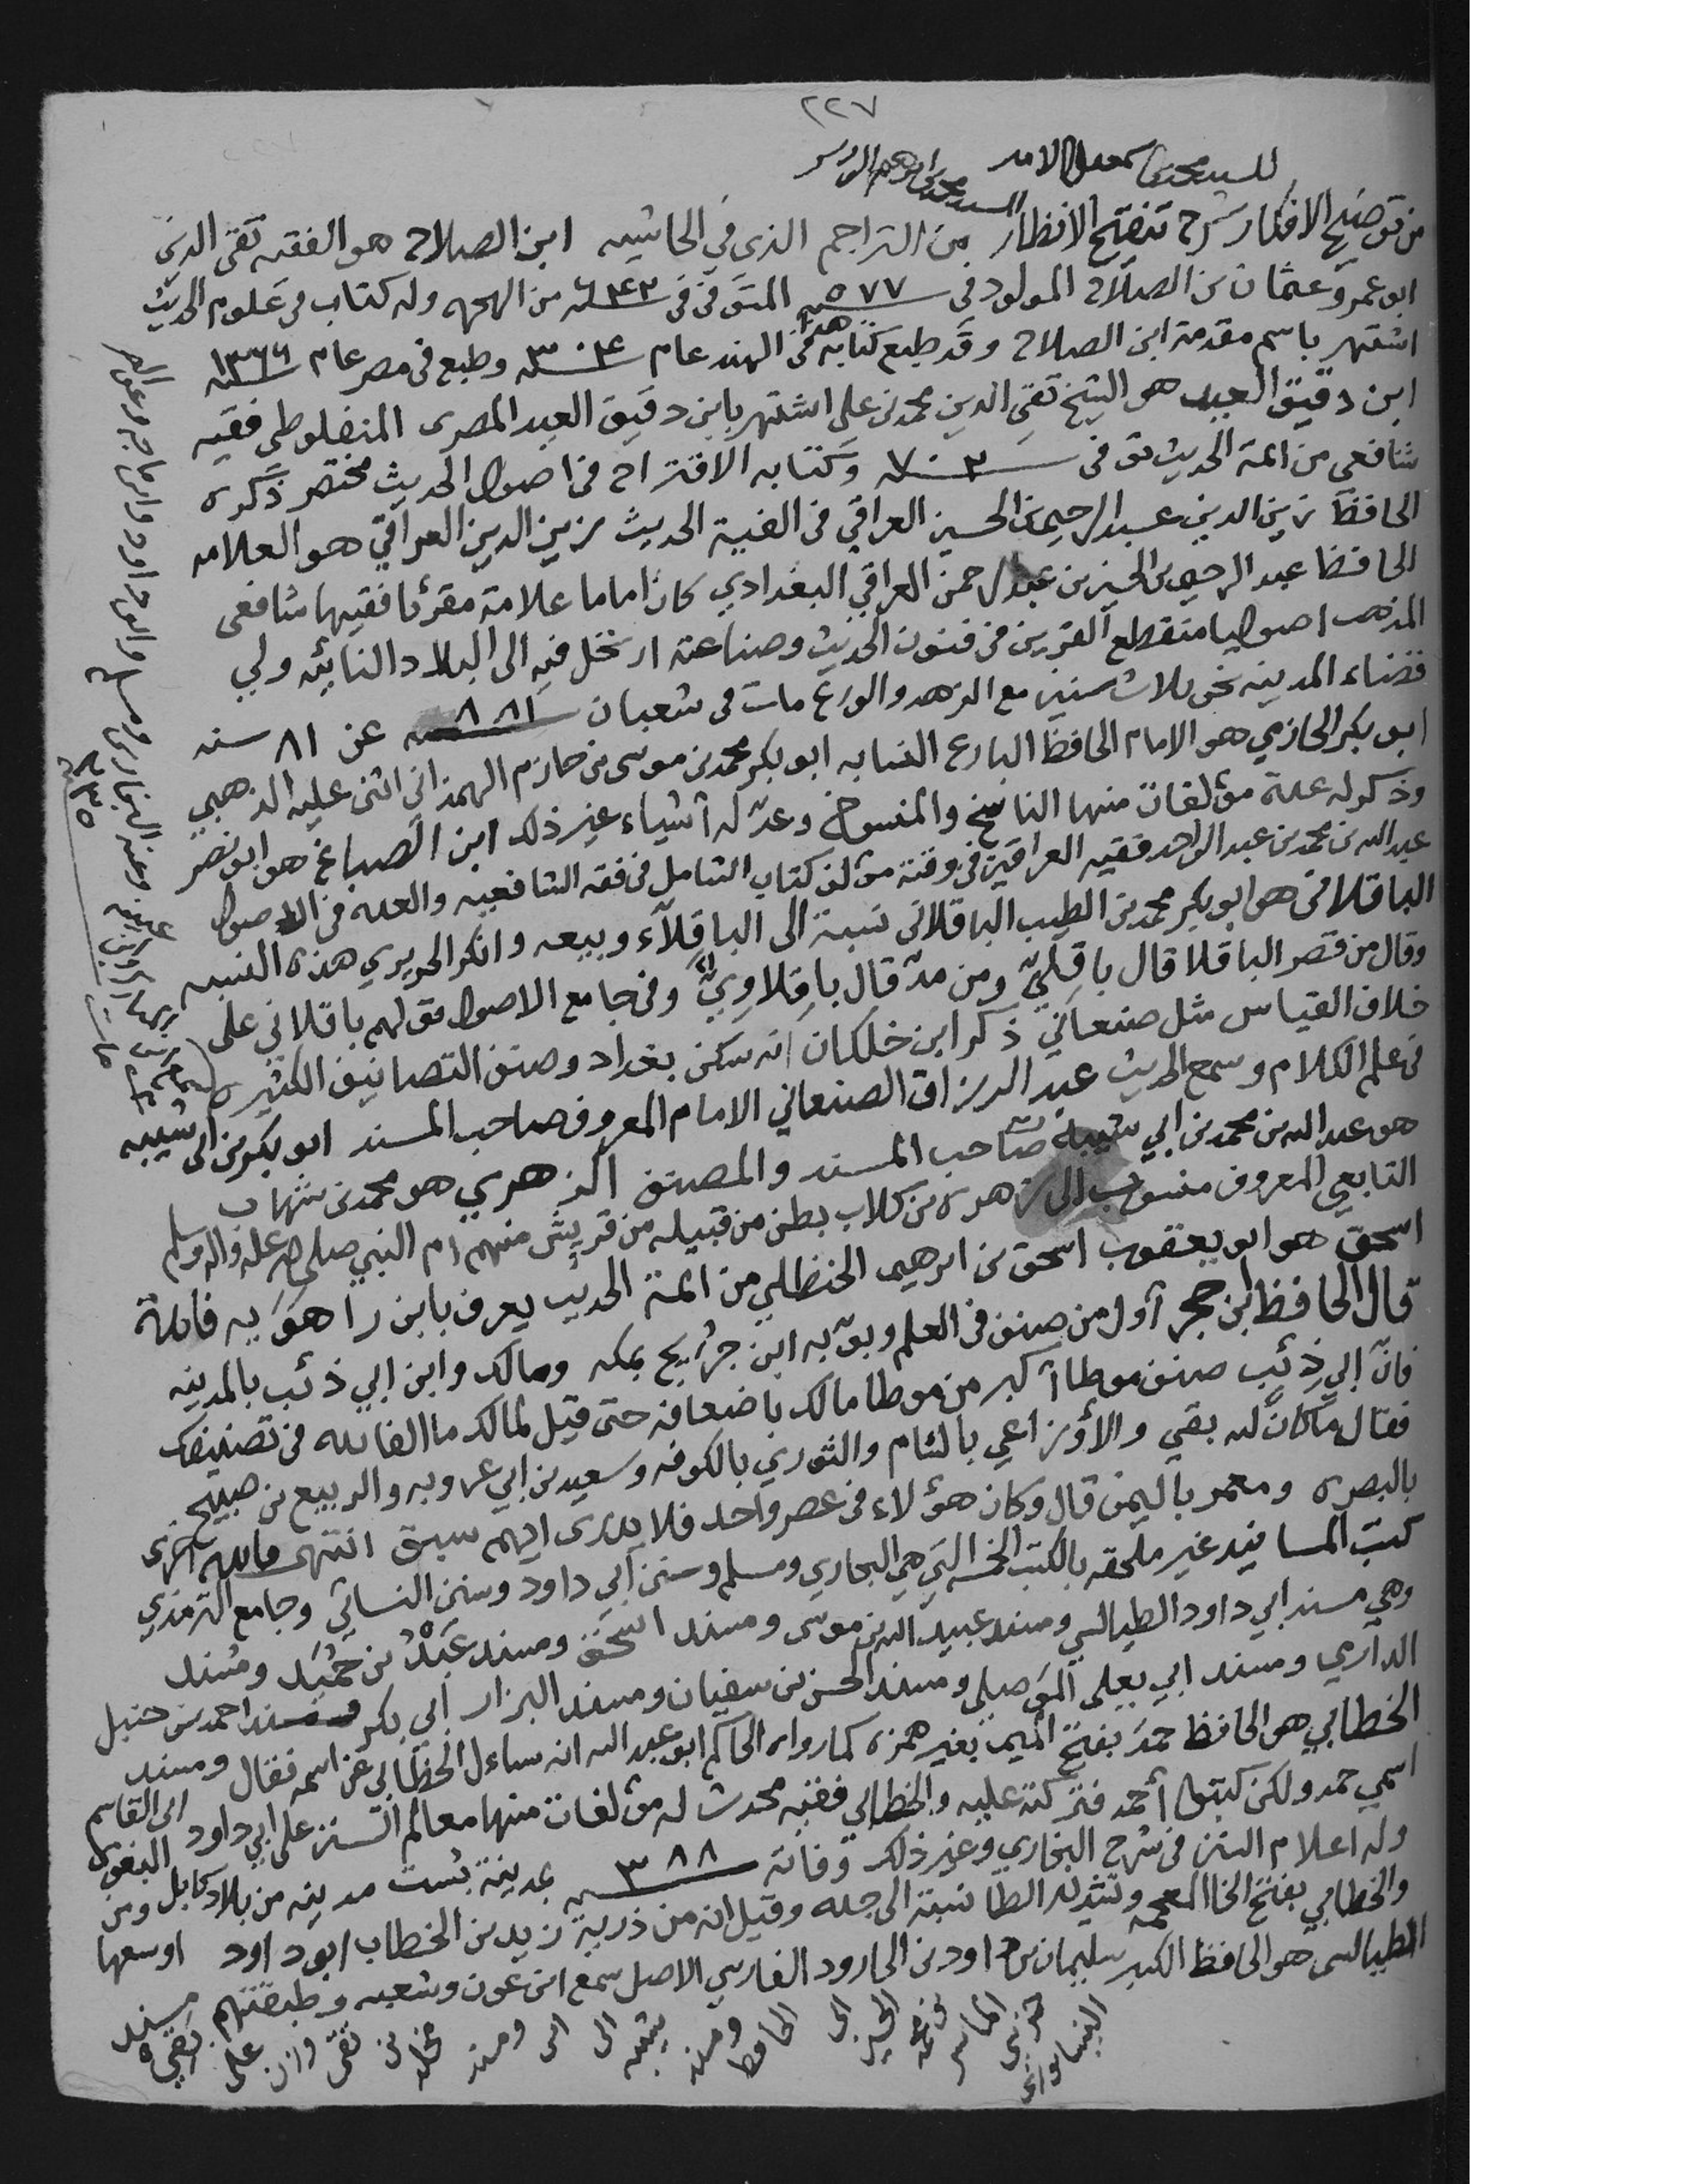 ٢٢٧
للسيد محمد بن اسمعيل الامير
السيد محمد بن ابراهيم الوزير
من توضيح الافكار شرح تنقيح الانظار من التراجم الذي في الحاشيه ابن الصلاح هو الفقيه تقي الدين
ابو عمرو عثمان بن الصلاح المولود في سنه ٥٧٧ المتوفى في سنه ٦٤٣ من الهجره وله كتاب في علوم الحديث
اشتهر باسم مقدمة ابن الصلاح وقد طبع كتابه هذا في الهند عام وطبع في مصر عام
ابن دقيق العيد هو الشيخ تقي الدين محمد بن علي اشتهر بابن دقيق العيد المصرى المنفلوطي فقيه
شافعي من ائمة الحديث توفى سنه ٧٠٢ وكتابه الاقتراح في اصول الحديث مختصر ذكره
الحافظ زين الدين عبد الرحيم بن الحسين العراقي في الفية الحديث زين الدين العراقي هو العلامه
الحافظ عبد الرحيم بن الحسين بن عبد الرحمن العراقي البغدادي كان اماما علامة مقرئا فقيها شافعي
المذهب اصوليا منقطع القرين في فنون الحديث وصناعته ارتحل فيه الى البلاد النائيه ولي
قضاء المدينه نحو ثلاث سنين مع الزهد والورع مات في شعبان عن ٨١ سنه
ابو بكر الحازمي هو الامام الحافظ البارع النسابه ابو بكر محمد بن موسى بن حازم الهمذاني اثنى عليه الذهبي
وذكر له عدة مؤلفات منها الناسخ والمنسوخ وعدّ له اشياء غير ذلك ابن الصباغ هو ابو نصر
عبد الله بن محمد بن عبد الواحد فقيه العراقين في وقته مؤلف كتاب الشامل في فقه الشافعيه والعده في الاصول
الباقلاني هو ابو بكر محمد بن الطيب الباقلاني نسبة الى الباقِلاّء وبيعه وانكر الحريري هذه النسبه
وقال من قصر الباقلا قال باقِليّ ومن مدّ قال باقِلاوِيّ وفي جامع الاصول قولهم باقلاني على
خلاف القياس مثل صنعاني ذكر ابن خلكان انه سكن بغداد وصنف التصانيف الكثيره
في علم الكلام وسمع الحديث عبد الرزاق الصنعاني الامام المعروف صاحب المسند ابو بكر بن ابي شيبه
هو عبد الله بن محمد بن ابي شيبة صاحب المسند والمصنف الزهري هو محمد بن شهاب
التابعي المعروف منسوب الى زهره بن كلاب بطن من قبيله من قريش منهم ام النبي صلى الله عليه واله وسلم
اسحق هو ابو يعقوب اسحق بن ابرهيم الحنظلي من ائمة الحديث يعرف بابن راهوَيه فائدة
قال الحافظ ابن حجر اول من صنف في العلم وبوّبه ابن جُرَيج بمكه ومالك وابن ابي ذئب بالمدينه
فانّ ابي ذئب صنف موطا اكبر من موطا مالك باضعافه حتى قيل لمالك ما الفائده في تصنيفك
فقال ما كان لله بقي والأوزاعي بالشام والثوري بالكوفه وسعيد بن ابي عروبه والربيع بن صبيح
بالبصره ومعمر باليمن قال وكان هؤلاء في عصر واحد فلا يدرى ايهم سبق انتهى فائده اخرى
كتب المسانيد غير ملحقه بالكتب الخمسه التي هي البخاري ومسلم وسنن ابي داود وسنن النسائي وجامع الترمذي
وهي مسند ابي داود الطيالسي ومسند عبيد الله بن موسى ومسند اسحق ومسند عَبْدُ بن حُمَيد ومسند
الدارمي ومسند ابي يعلى الموصلي ومسند الحسن بن سفيان ومسند البزار ابي بكر ومسند احمد بن حنبل
الخطابي هو الحافظ حمد بفتح الميم بغير همزه كما رواه الحاكم ابو عبد الله انه ساءل الخطابي عن اسمه فقال ومسند
اسمي حمد ولكن كتبوا أحمد فتركته عليه والخطابي فقيه محدث له مؤلفات منها معالم السنن على ابي داود ابى القاسم البغوي
وله اعلام السنن في شرح البخاري وغير ذلك وفاته سنه ٣٨٨ بمدينة بُست مدينه من بلاد كابل ومن
والخطابي بفتح الخا المعجمه وتشديد الطا نسبة الى جده وقيل انه من ذرية زيد بن الخطاب ابو داود اوسعها
الطيالسى هو الحافظ الكبير سليمان بن داود بن الجارود الفارسي الاصل سمع ابن عون وشعبه وطبقتهم مسند